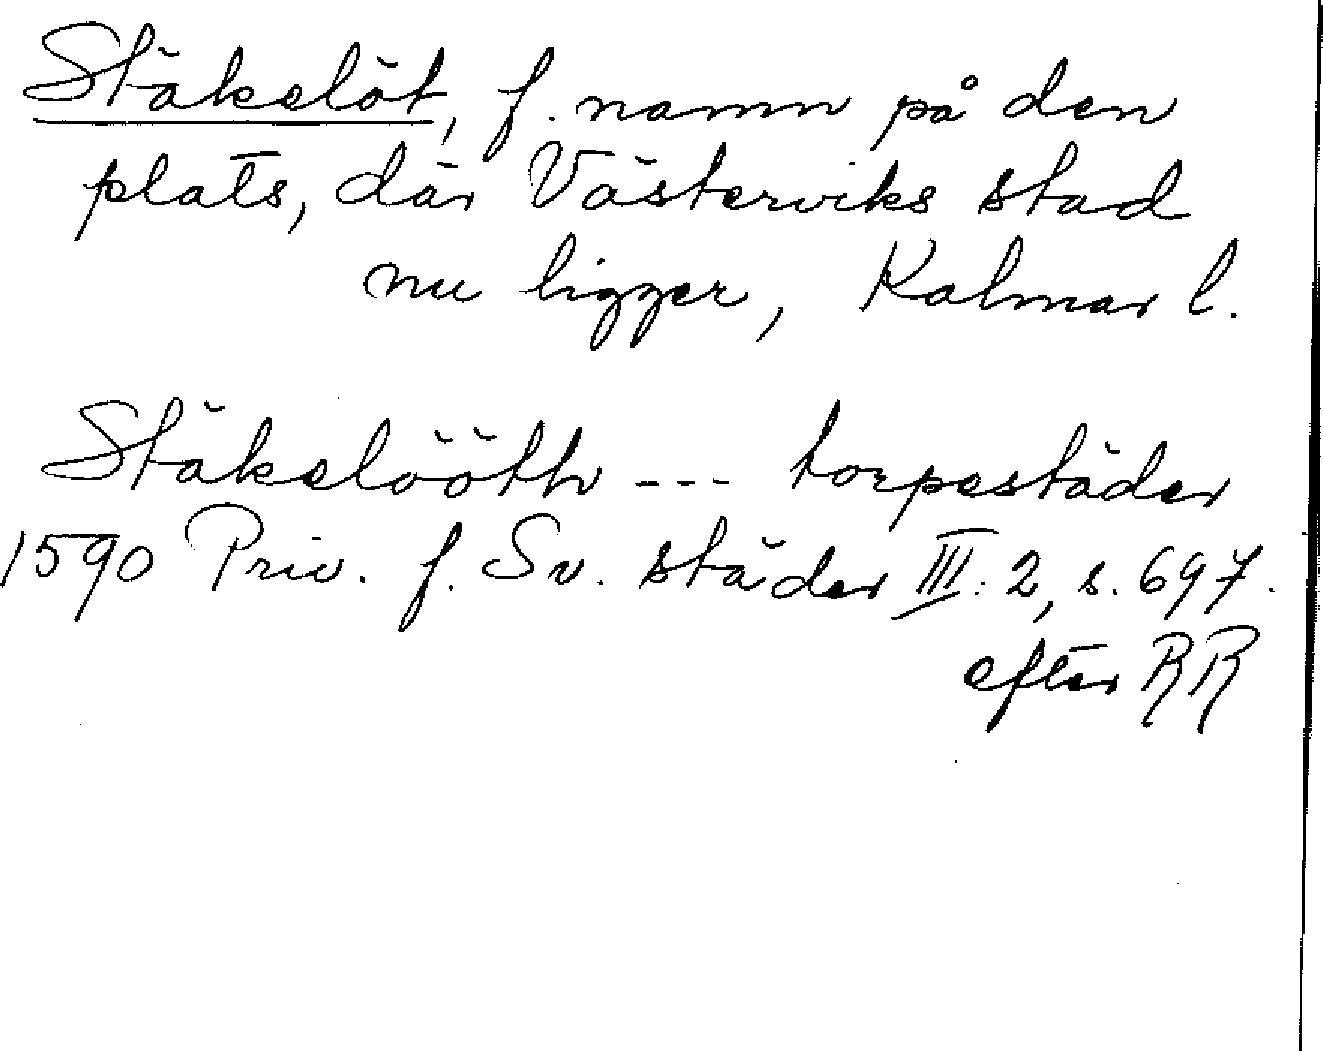 Stäkelöt, f. namn på den
plats, där Västerviks stad
nu ligger, Kalmar l.
Stäkelööth --- torpestäder
1590 Priv. f. Sv. städer III: 2, s. 697.
efter RR